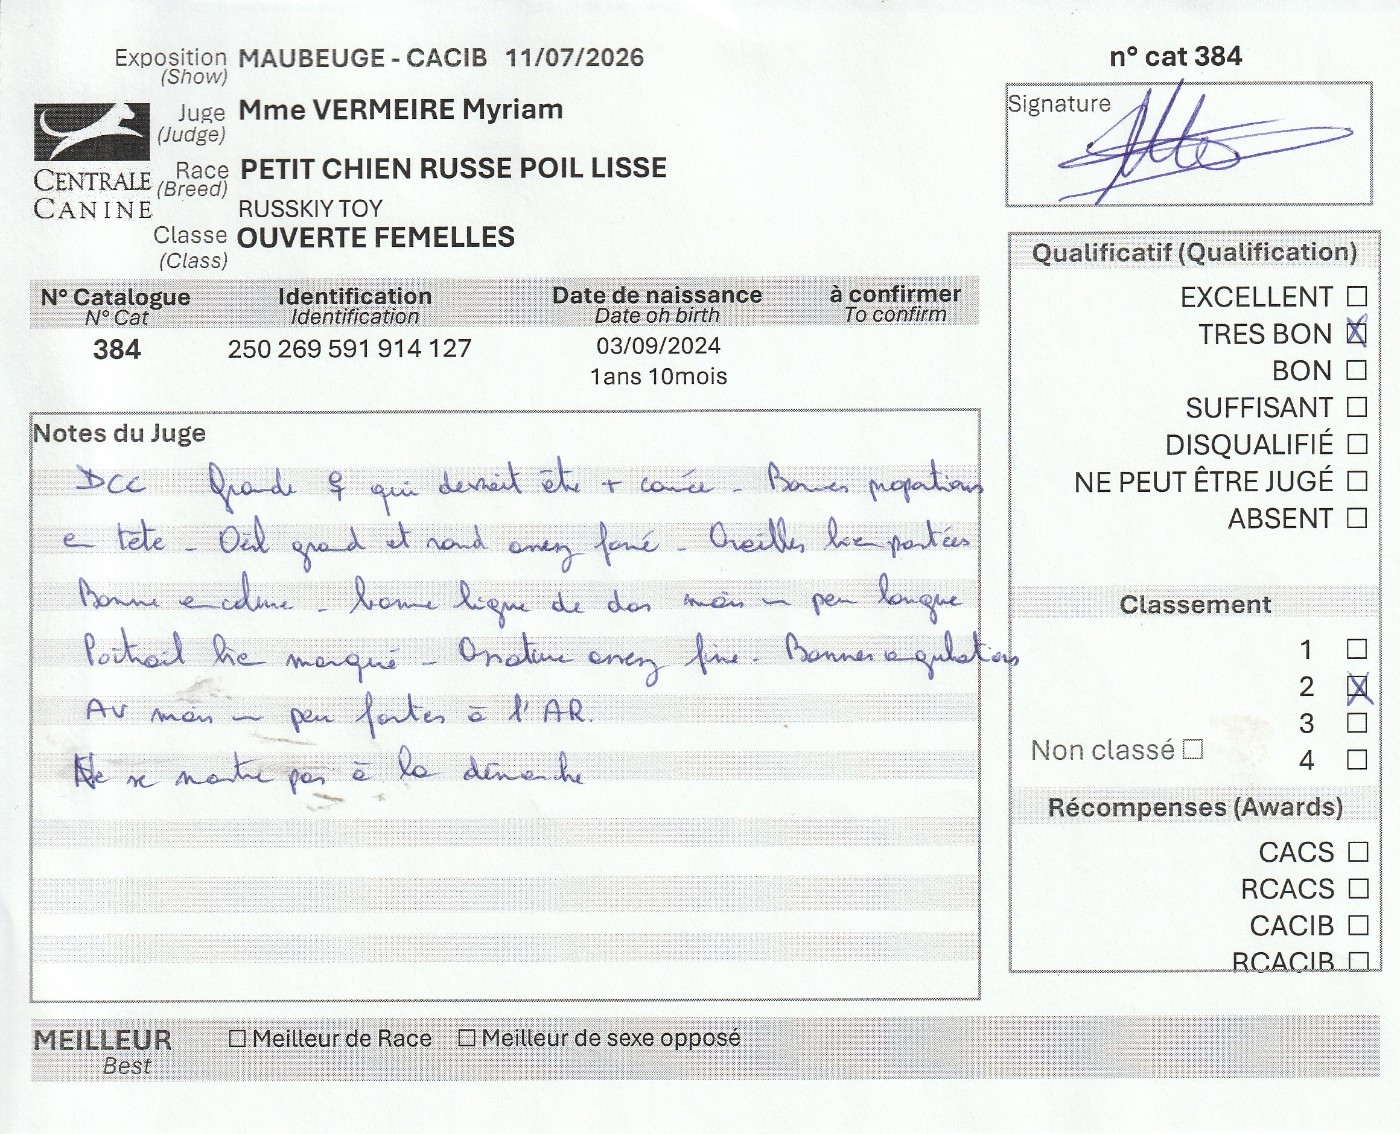 Exposition MAUBEUGE - CACIB 11/07/2026
(Show)
n° cat 384
Juge Mme VERMEIRE Myriam
(Judge)
Signature
CENTRALE CANINE
Race PETIT CHIEN RUSSE POIL LISSE
(Breed)
RUSSKIY TOY
Classe OUVERTE FEMELLES
(Class)
N° Catalogue Identification Date de naissance à confirmer
N° Cat Identification Date oh birth To confirm
384 250 269 591 914 127 03/09/2024
1ans 10mois
Notes du Juge
DCC Grande ♀ qui devrait être + carrée - Bonnes proportions
en tête - Oeil grand et rond assez foncé - Oreilles bien portées
Bonne encolure - bonne ligne de dos mais un peu longue
Poitrail bien marqué - Ossature assez fine - Bonnes angulations
AV mais un peu fortes à l'AR.
Ne se montre pas à la démarche
Qualificatif (Qualification)
EXCELLENT ☐
TRES BON ☒
BON ☐
SUFFISANT ☐
DISQUALIFIÉ ☐
NE PEUT ÊTRE JUGÉ ☐
ABSENT ☐
Classement
1 ☐
2 ☒
3 ☐
Non classé ☐
4 ☐
Récompenses (Awards)
CACS ☐
RCACS ☐
CACIB ☐
RCACIB ☐
MEILLEUR ☐ Meilleur de Race ☐ Meilleur de sexe opposé
Best